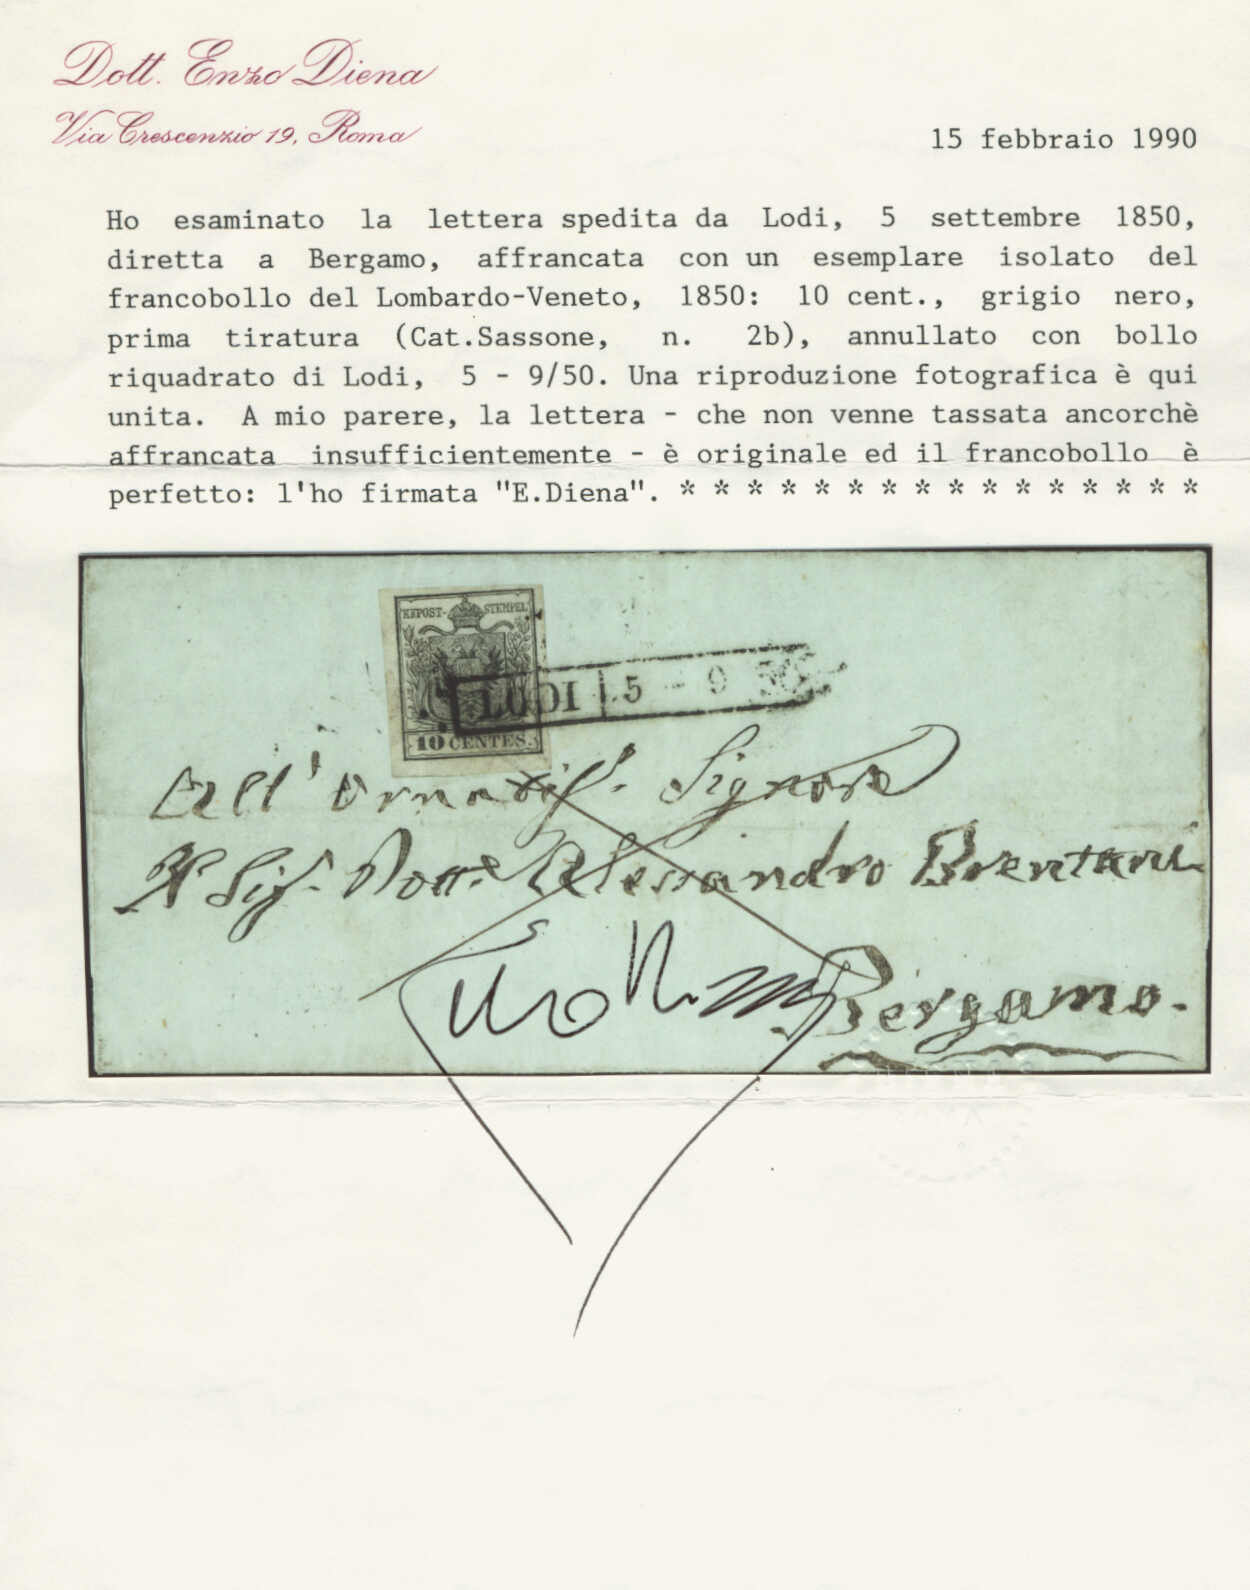 Dott. Enzo Diena
Via Crescenzio 19, Roma
15 febbraio 1990
Ho esaminato la lettera spedita da Lodi, 5 settembre 1850,
diretta a Bergamo, affrancata con un esemplare isolato del
francobollo del Lombardo-Veneto, 1850: 10 cent., grigio nero,
prima tiratura (Cat.Sassone, n. 2b), annullato con bollo
riquadrato di Lodi, 5 - 9/50. Una riproduzione fotografica è qui
unita. A mio parere, la lettera - che non venne tassata ancorchè
affrancata insufficientemente - è originale ed il francobollo è
perfetto: l'ho firmata "E.Diena". * * * * * * * * * * * * * * * *
KKPOST-STEMPEL
LODI 5 - 9
10 CENTES.
All' Ornatis. Signore
Il Sig. Dott. Alessandro Brentani
Bergamo.